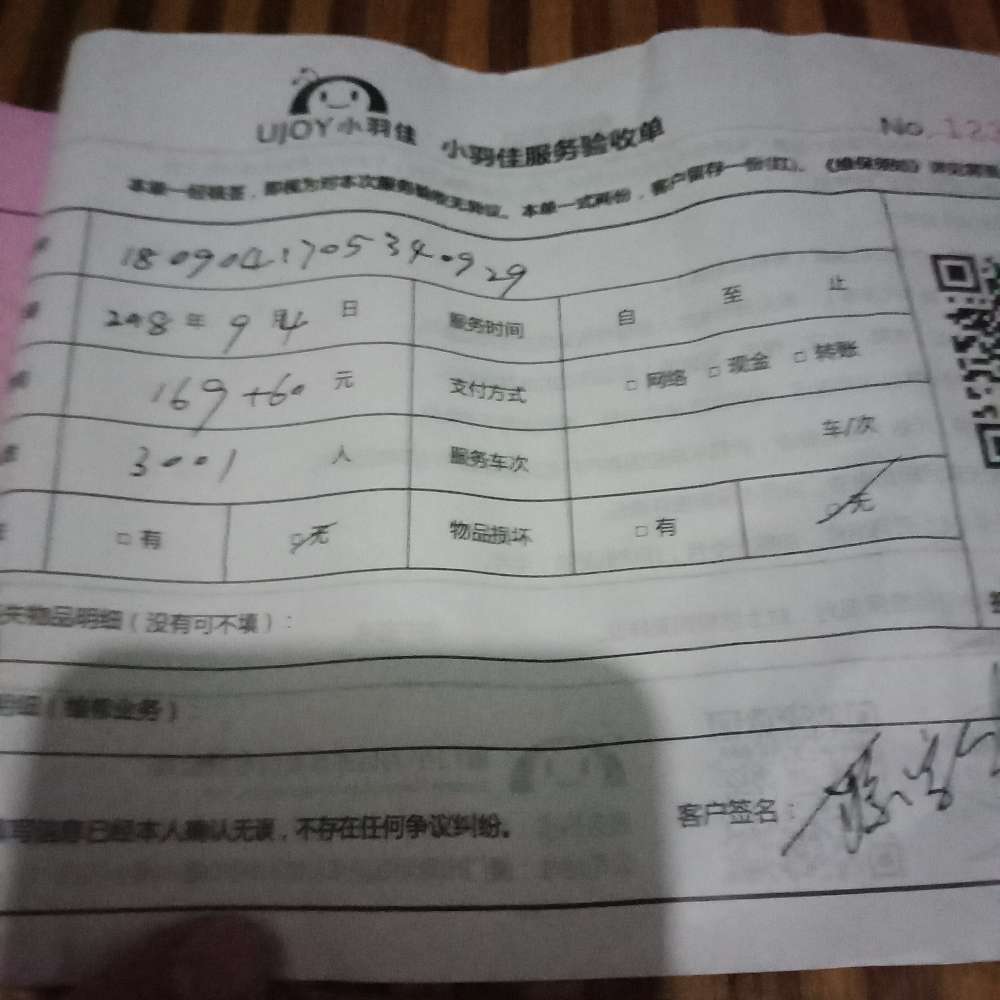 UJOY小羽佳 小羽佳服务验收单 No. 123
本单一经签署，即视为对本次服务验收无异议。本单一式两份，客户留存一份(红)。《维保须知》详见背面
1809041705340929
2018 年 9 月4 日 服务时间 自 至 止
169+60 元 支付方式 □ 网络 □ 现金 □ 转账
3001 人 服务车次 车/次
□ 有 □ 无 物品损坏 □ 有 □ 无
失物品明细（没有可不填）：
明细（维修业务）：
已经本人确认无误，不存在任何争议纠纷。
客户签名：